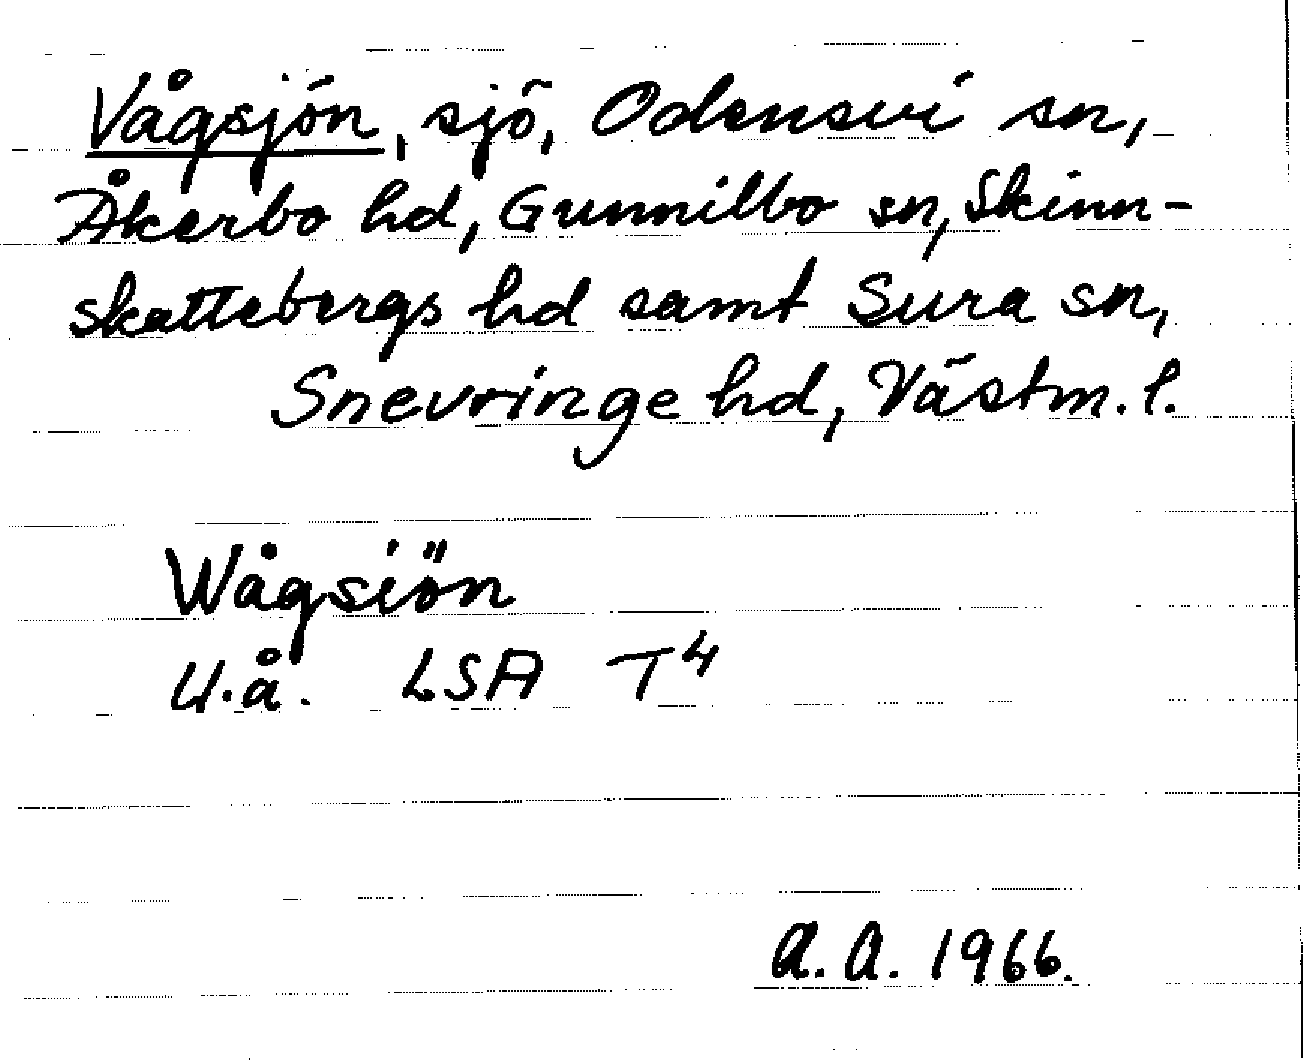 Vågsjön, sjö, Odensvi sn,
Åkerbo hd, Gunnilbo sn, Skinn-
skattebergs hd samt Sura sn,
Snevringe hd, Västm. l.
Wågsiön
U.å. LSA T4
A. A. 1966.